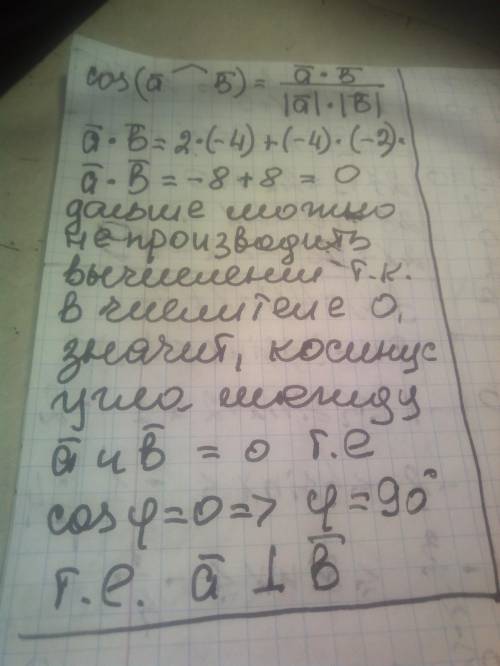 cos(a̅ ^ b̅) = a̅ · b̅ / |a̅| · |b̅|
a̅ · b̅ = 2·(-4) + (-4)·(-2)·
a̅ · b̅ = -8 + 8 = 0
дальше можно
не производить
вычислений т.к.
в числителе 0,
значит, косинус
угла между
a̅ и b̅ = 0 т.е
cos φ = 0 => φ = 90°
т.е. a̅ ⊥ b̅